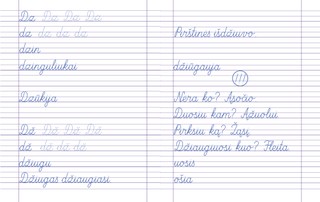 Dz Dz Dz Dz
dz dz dz dz
dzin
dzinguliukai
Dzūkija
Dž Dž Dž Dž
dž dž dž dž
džiugu
Džiugas džiaugiasi
Pirštinės išdžiuvo.
džiūgauja
Nėra ko? Ąsočio
Duosiu kam? Ąžuolui
Pirksiu ką? Žąsį
Džiaugiuosi kuo? Fleita
uosis
ošia